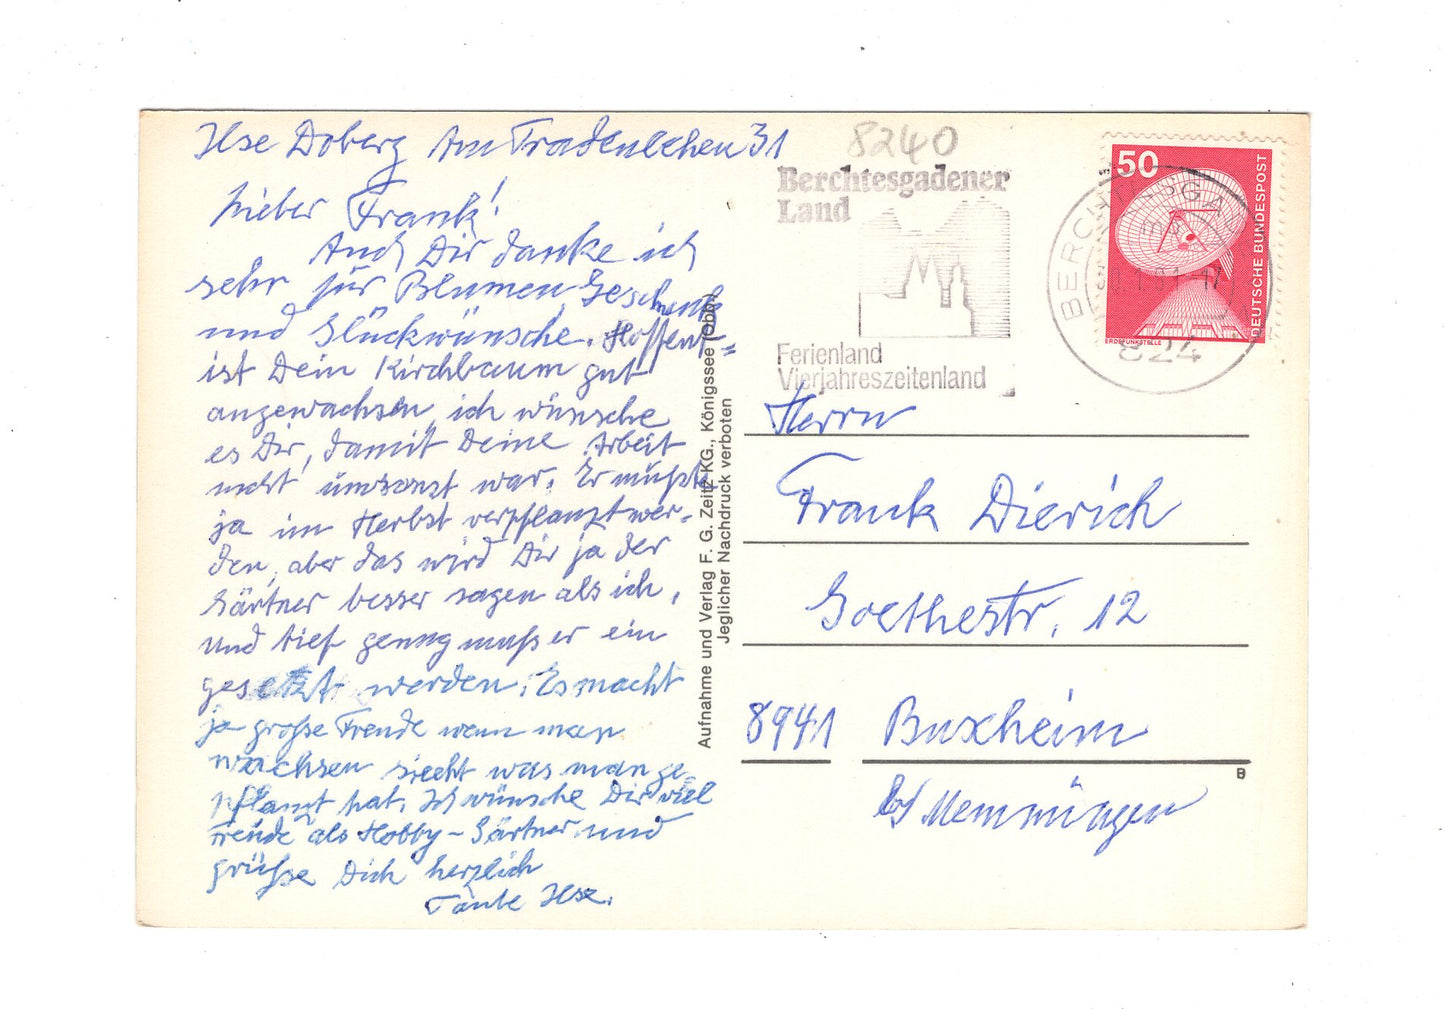 Ilse Doberg Am Fradenlehen 31
Lieber Frank!
Auch Dir danke ich
sehr für Blumen, Geschenk
und Glückwünsche. Hoffent=
ist Dein Kirchbaum gut
angewachsen, ich wünsche
es Dir, damit Deine Arbeit
nicht umsonst war. Er mußte
ja im Herbst verpflanzt wer-
den, aber das wird Dir ja der
Gärtner besser sagen als ich,
und tief genug muß er ein
gesetzt werden. Es macht
ja große Freude wenn man
wachsen sieht was man ge-
pflanzt hat. Ich wünsche Dir viel
Freude als Hobby-Gärtner und
grüße Dich herzlich
Tante Ilse.
Aufnahme und Verlag F. G. Zeitz KG., Königssee (Obb.)
Jeglicher Nachdruck verboten
8240
Berchtesgadener
Land
Ferienland
Vierjahreszeitenland
BERCHTESGADEN
824
50
DEUTSCHE BUNDESPOST
ERDEFUNKSTELLE
Herrn
Frank Dierich
Goethestr. 12
8941 Buxheim
b/ Memmingen